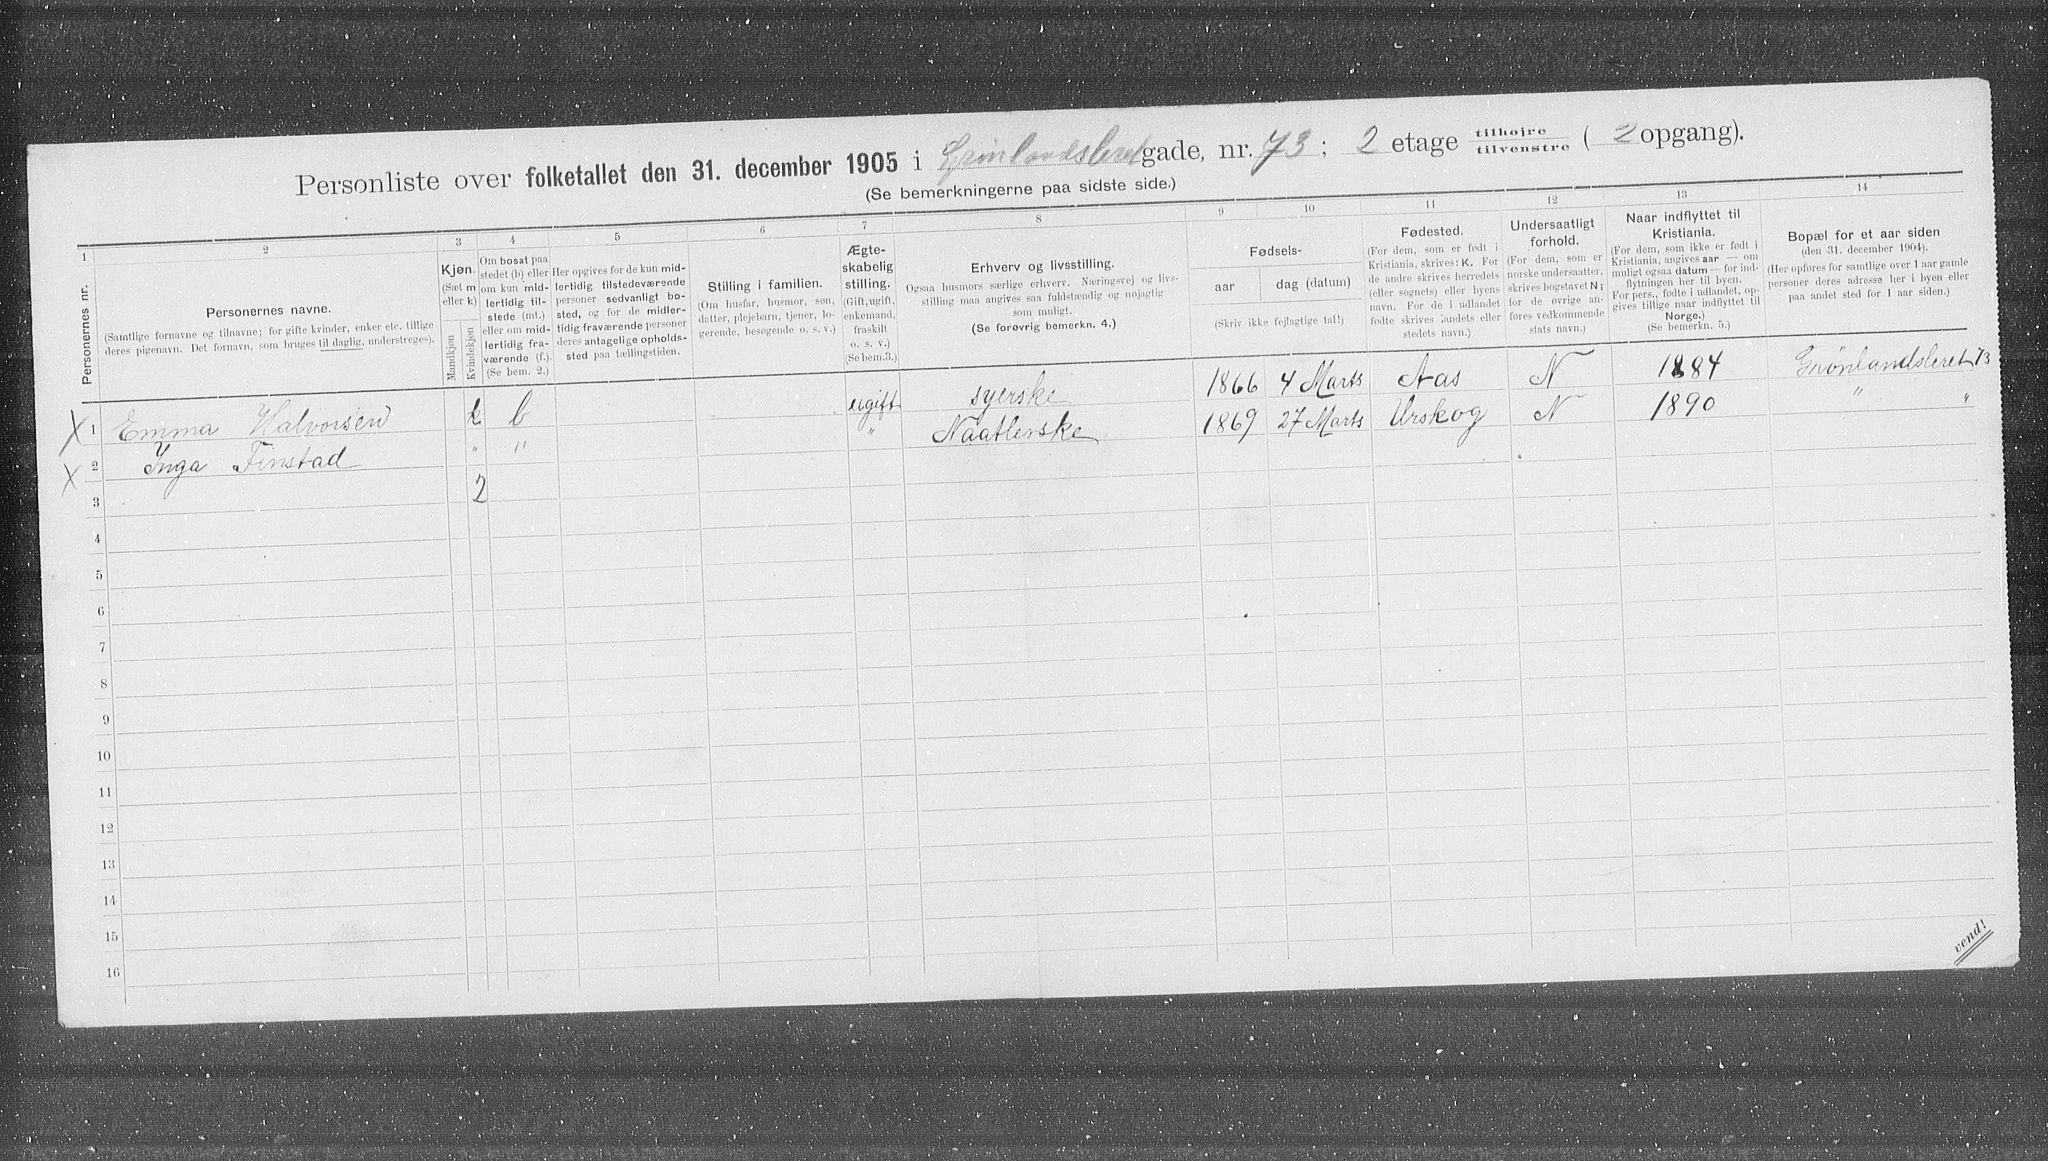 Personliste over folketallet den 31. december 1905 i Grønlandsleret gade, nr. 73; 2 etage tilhøjre/tilvenstre (2 opgang).
(Se bemerkningerne paa sidste side.)
1 2 3 4 5 6 7 8 9 10 11 12 13 14
Personernes nr.
Personernes navne.
(Samtlige fornavne og tilnavne; for gifte kvinder, enker etc. tillige
deres pigenavn. Det fornavn, som bruges til daglig, understreges).
Kjøn.
(Sæt m
eller k)
Mandkjøn
Kvindekjøn
Om bosat paa
stedet (b) eller
om kun mid-
lertidig til-
stede (mt.)
eller om mid-
lertidig fra-
værende (f.).
(Se bem. 2.)
Her opgives for de kun mid-
lertidig tilstedeværende
personer sedvanligt bo-
sted, og for de midler-
tidig fraværende personer
deres antagelige opholds-
sted paa tællingstiden.
Stilling i familien.
(Om husfar, husmor, søn,
datter, plejebarn, tjener, lo-
gerende, besøgende o. s. v.)
Ægte-
skabelig
stilling.
(Gift, ugift,
enkemand,
fraskilt
o. s. v.)
(Se bem.3.)
Erhverv og livsstilling.
Ogsaa husmors særlige erhverv. Næringsvej og livs-
stilling maa angives saa fuldstændig og nøjagtig
som muligt.
(Se forøvrig bemerkn. 4.)
Fødsels-
aar
dag (datum)
(Skriv ikke fejlagtige tal!)
Fødested.
(For dem, som er født i
Kristiania, skrives: K. For
de andre skrives herredets
(eller sognets) eller byens
navn. For de i udlandet
fødte skrives landets eller
stedets navn.)
Undersaatligt
forhold.
(For dem, som er
norske undersaatter,
skrives bogstavet N;
for de øvrige an-
føres vedkommende
stats navn.)
Naar indflyttet til
Kristiania.
(For dem, som ikke er født i
Kristiania, angives aar — om
muligt ogsaa datum — for ind-
flytningen her til byen.
For pers., fødte i udlandet, op-
gives tillige naar indflyttet til
Norge.)
(Se bemerkn. 5.)
Bopæl for et aar siden
(den 31. december 1904).
(Her opføres for samtlige over 1 aar gamle
personer deres adresse her i byen eller
paa andet sted for 1 aar siden.)
X 1 Emma Halvorsen k b ugift syerske 1866 4 Marts Aas N 1884 Grønlandsleret 73
X 2 Inga Finstad " " " Naatlerske 1869 27 Marts Urskog N 1890 " "
3 2
4
5
6
7
8
9
10
11
12
13
14
15
16
vend!